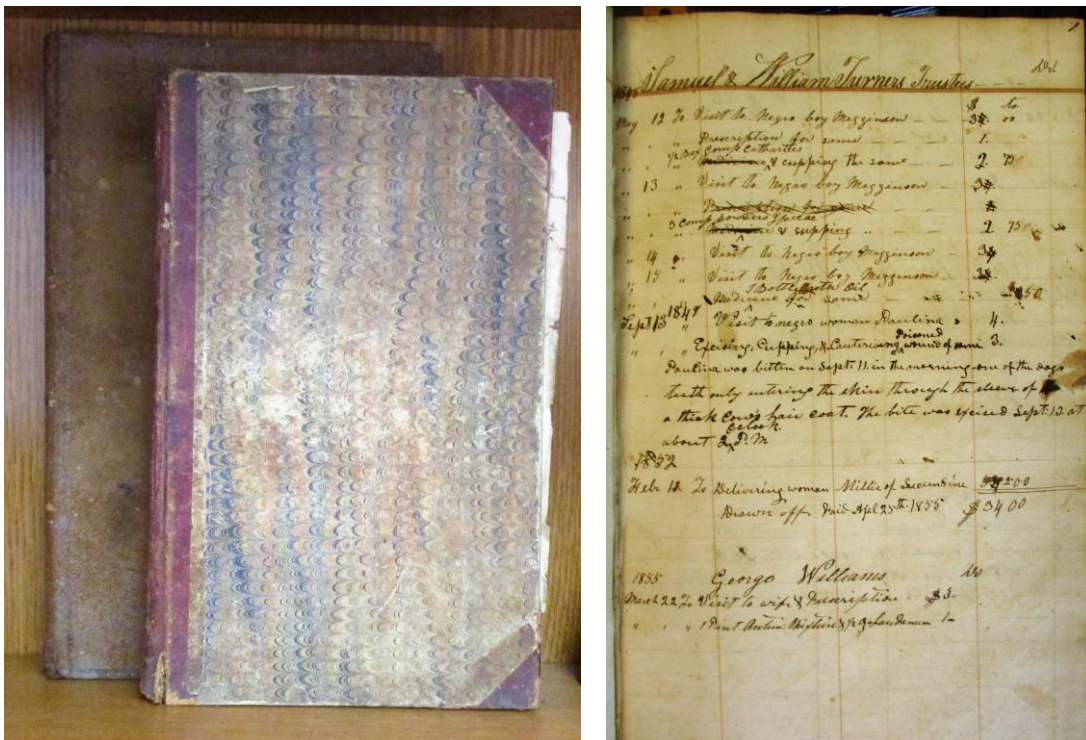 1
Samuel & William Turners Trustees Dr.
1848 $
May 12 To Visit to Negro boy Megginson 3 00
" " " Prescription for same 1.
Comp Cathartics
& cupping the same 2. 75
" 13 " Visit to Negro boy Megginson 3
3 Comp powders Ipecac
& cupping " 2 75
" 14 " Visit to Negro boy Megginson 3
" 15 " Visit to Negro boy Megginson 3
1 Bottle Castor Oil
" " Medicine for same 50
Sept 13 1848 " Visit to negro woman Paulina 4.
poisoned
" " " Excising, Cupping, & Cauterising wound of same 3.
Paulina was bitten on Sept: 11: in the morning one of the dogs
teeth only entering the skin through the sleeve of
a thick cows hair coat. The bite was excised Sept: 13 at
oclock
about 2 P. M
1852
Febr 18 To Delivering woman Millie of 00
Drawn off Paid Apl 25th 1855 $ 34 00
1855 George Williams Dr
March 22 To Visit to wife & Prescription $3-
" " " 1 Pint Antim: Mixture & Laudanum 1-